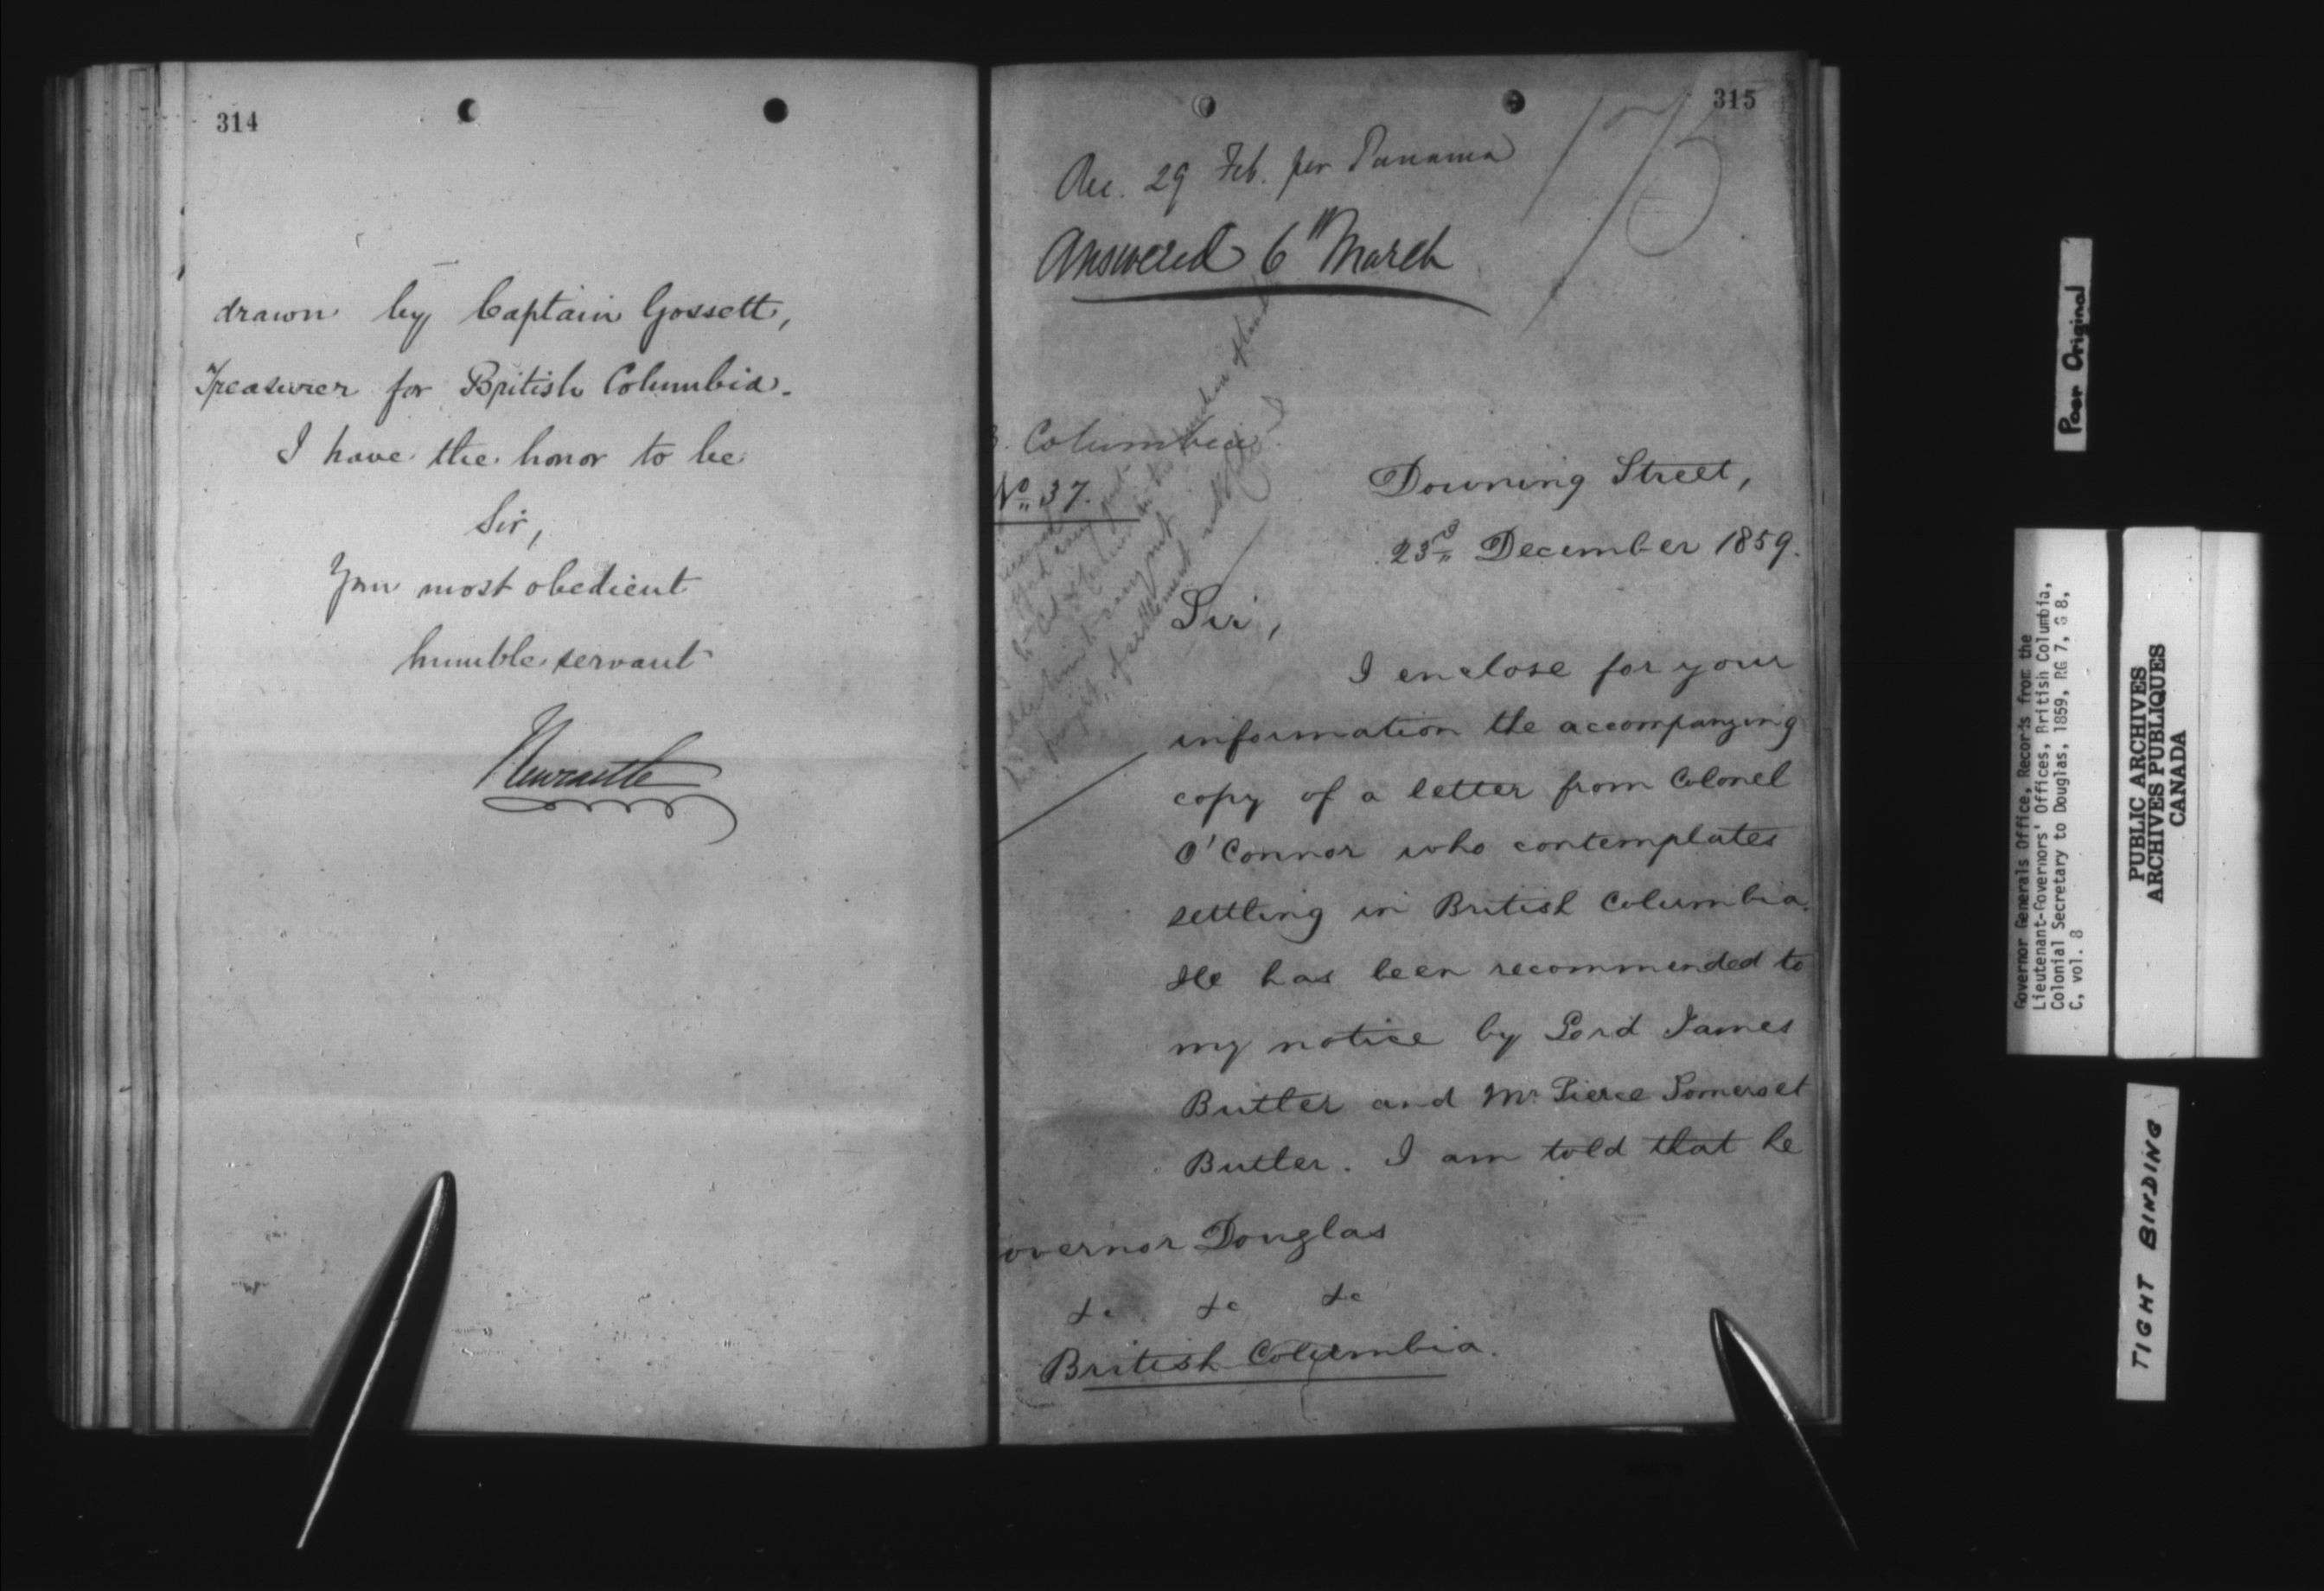 314
drawn by Captain Gossett,
Treasurer for British Columbia.
I have the honor to be
Sir,
Your most obedient
humble servant
Newcastle
315
175
Rec. 29 Feb. per Panama
Answered 6th March
B. Columbia
No 37.
Downing Street,
23rd December 1859.
Sir,
I enclose for your
information the accompanying
copy of a letter from Colonel
O'Connor who contemplates
settling in British Columbia.
He has been recommended to
my notice by Lord James
Butler and Mr Pierce Somerset
Butler. I am told that he
overnor Douglas
&c &c &c
British Columbia.
Poor Original
Governor Generals Office, Records from the
Lieutenant-Governors' Offices, British Columbia,
Colonial Secretary to Douglas, 1859, RG 7, G 8,
C, vol. 8
PUBLIC ARCHIVES
ARCHIVES PUBLIQUES
CANADA
TIGHT BINDING